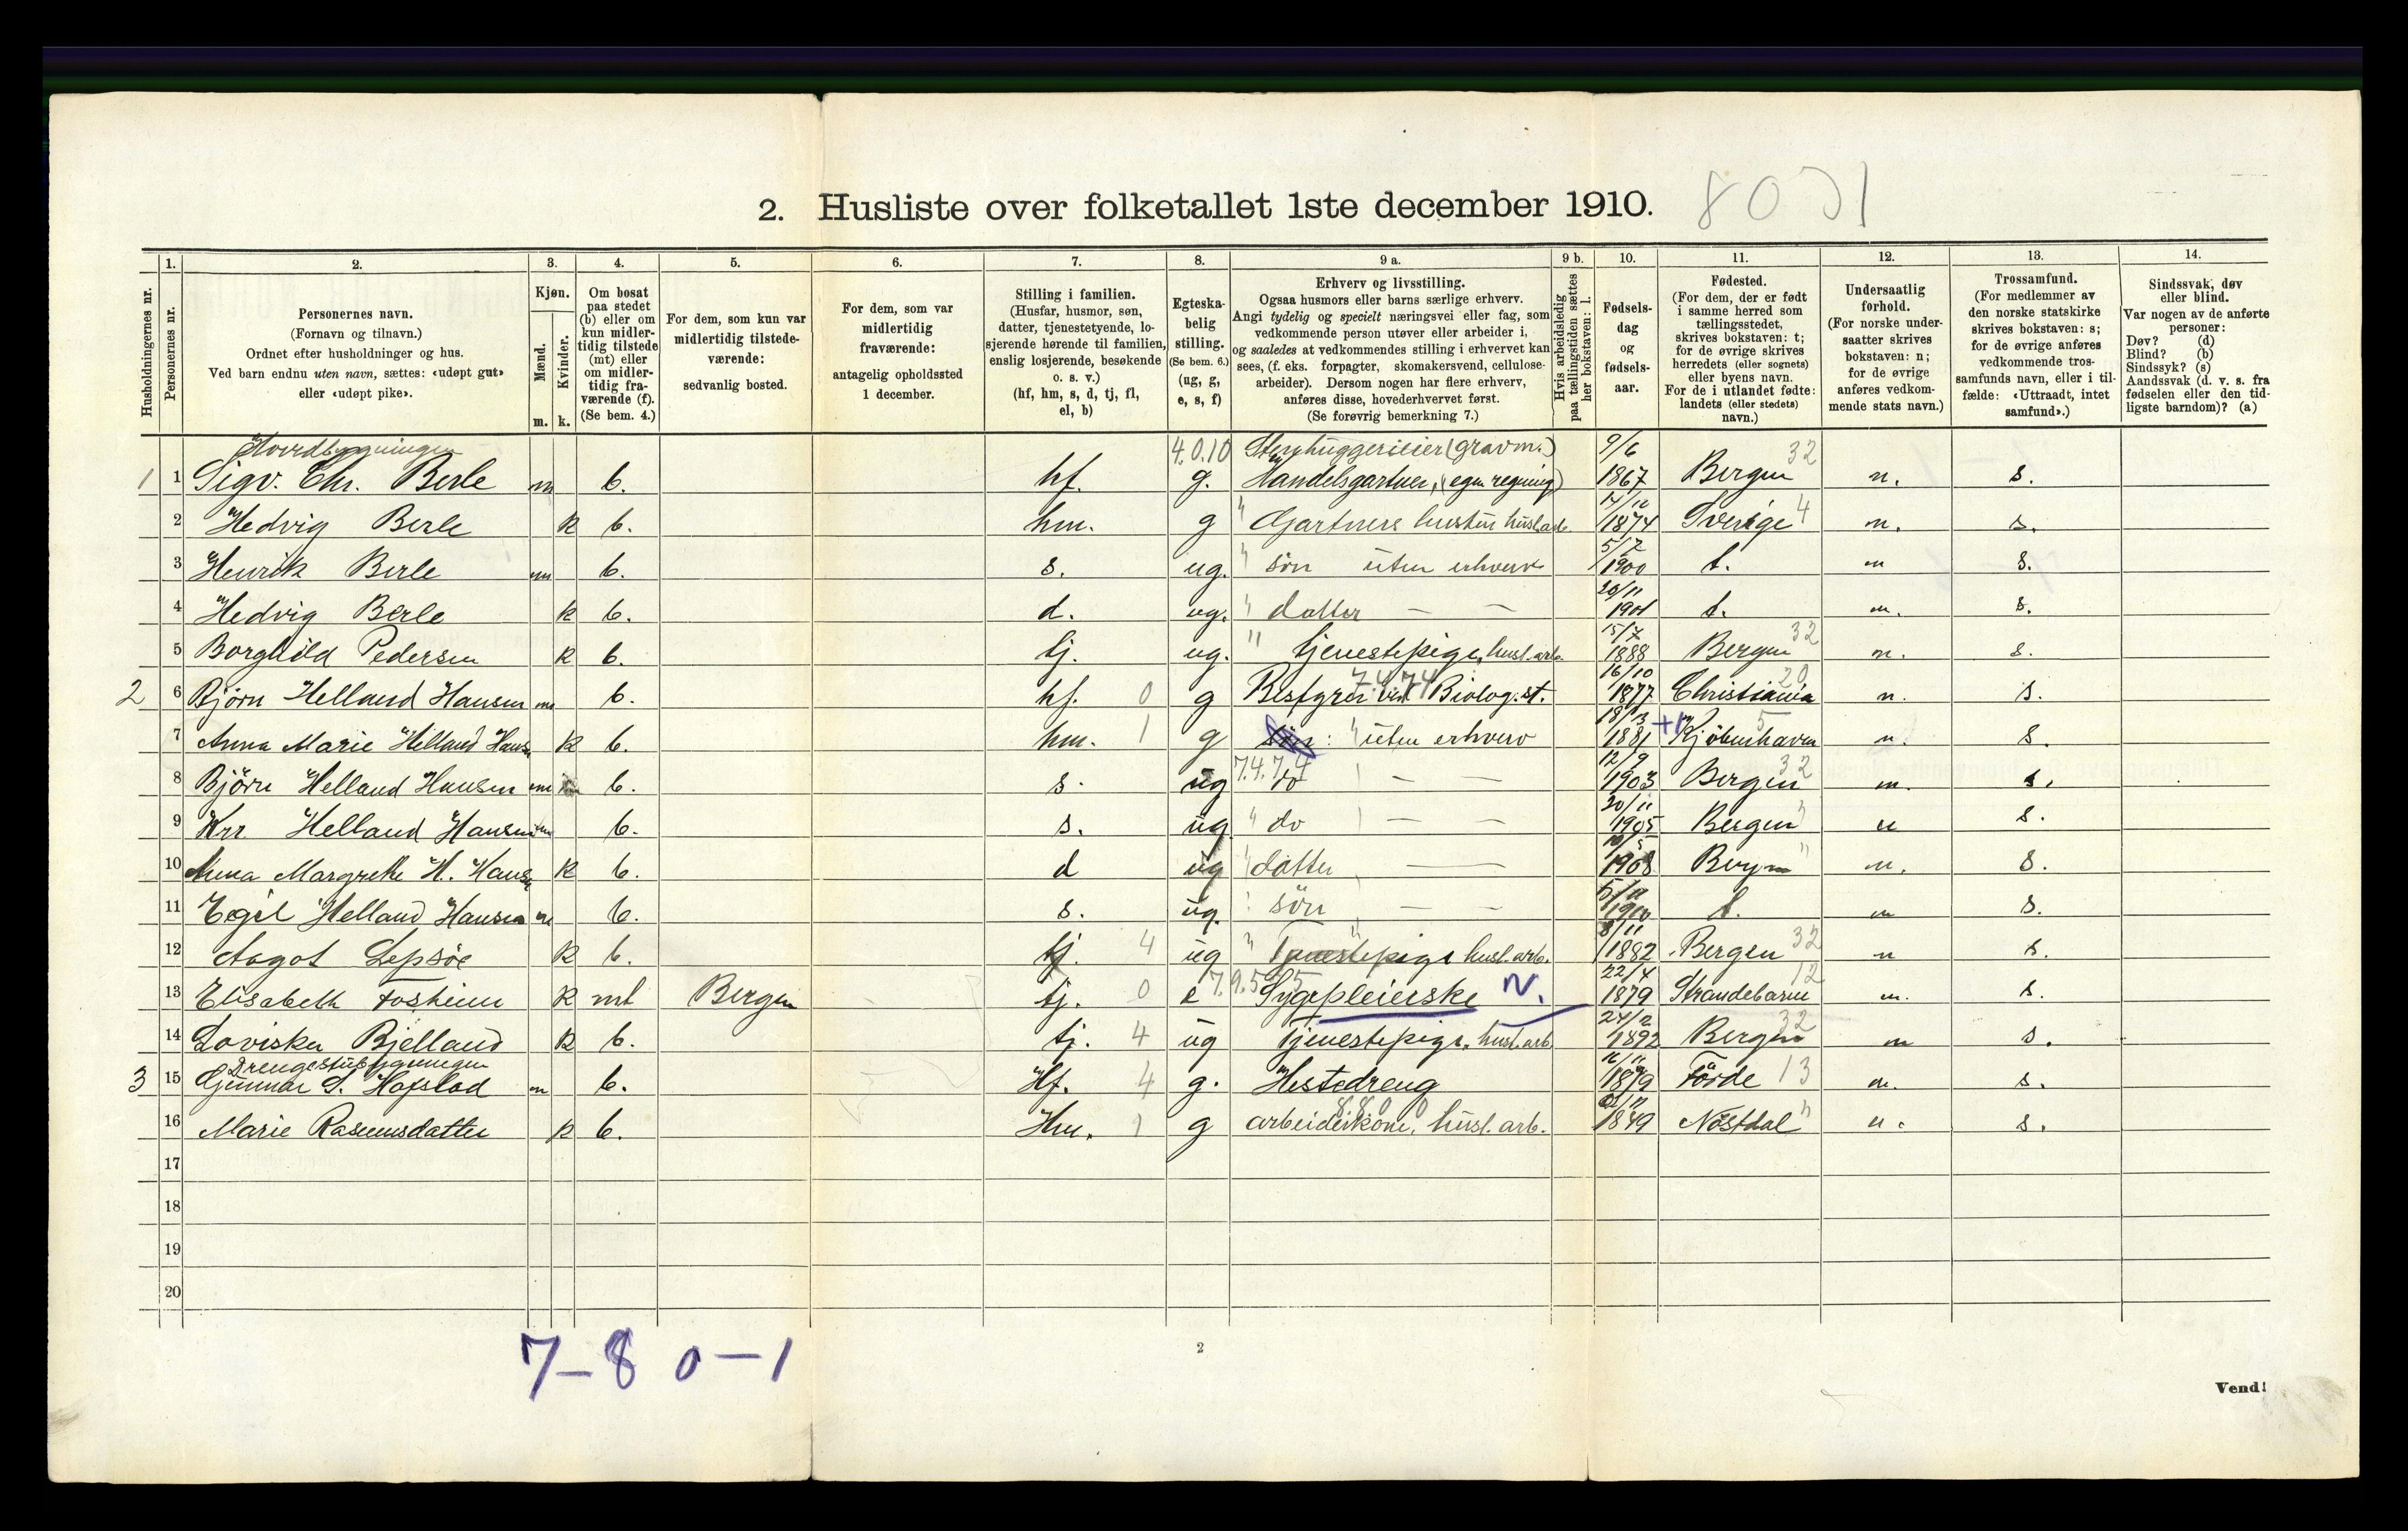 2. Husliste over folketallet 1ste december 1910.
Husholdningernes nr.
1.
Personernes nr.
2.
Personernes navn.
(Fornavn og tilnavn.)
Ordnet efter husholdninger og hus.
Ved barn endnu uten navn, sættes: «udøpt gut»
eller «udøpt pike».
3.
Kjøn.
Mænd.
Kvinder.
m. k.
4.
Om bosat
paa stedet
(b) eller om
kun midler-
tidig tilstede
(mt) eller
om midler-
tidig fra-
værende (f).
(Se bem. 4.)
5.
For dem, som kun var
midlertidig tilstede-
værende:
sedvanlig bosted.
6.
For dem, som var
midlertidig
fraværende:
antagelig opholdssted
1 december.
7.
Stilling i familien.
(Husfar, husmor, søn,
datter, tjenestetyende, lo-
sjerende hørende til familien,
enslig losjerende, besøkende
o. s. v.)
(hf, hm, s, d, tj, fl,
el, b)
8.
Egteska-
belig
stilling.
(Se bem. 6.)
(ug, g,
e, s, f)
9 a.
Erhverv og livsstilling.
Ogsaa husmors eller barns særlige erhverv.
Angi tydelig og specielt næringsvei eller fag, som
vedkommende person utøver eller arbeider i,
og saaledes at vedkommendes stilling i erhvervet kan
sees, (f. eks. forpagter, skomakersvend, cellulose-
arbeider). Dersom nogen har flere erhverv,
anføres disse, hovederhvervet først.
(Se forøvrig bemerkning 7.)
9 b.
Hvis arbeidsledig
paa tællingstiden sættes
her bokstaven: l.
10.
Fødsels-
dag
og
fødsels-
aar.
11.
Fødested.
(For dem, der er født
i samme herred som
tællingsstedet,
skrives bokstaven: t;
for de øvrige skrives
herredets (eller sognets)
eller byens navn.
For de i utlandet fødte:
landets (eller stedets)
navn.)
12.
Undersaatlig
forhold.
(For norske under-
saatter skrives
bokstaven: n;
for de øvrige
anføres vedkom-
mende stats navn.)
13.
Trossamfund.
(For medlemmer av
den norske statskirke
skrives bokstaven: s;
for de øvrige anføres
vedkommende tros-
samfunds navn, eller i til-
fælde: «Uttraadt, intet
samfund».)
14.
Sindssvak, døv
eller blind.
Var nogen av de anførte
personer:
Døv? (d)
Blind? (b)
Sindssyk? (s)
Aandssvak (d. v. s. fra
fødselen eller den tid-
ligste barndom)? (a)
Hovedbygningen 4.0.10 Stenhuggerieier (gravm.) 9/6 32
1 1 Sigv. Chr. Berle m b. hf. g. Handelsgartner, (egen regning) 1867 Bergen n. s.
2 Hedvig Berle k b. hm. g " Gartners hustru husl. arb 1874 Sverige 4 n. s.
3 Henrik Berle m b. s. ug. " søn uten erhverv 5/7 1900 t. n s.
4 Hedvig Berle k b. d. ug. " datter — — 20/11 1901 t. n. s.
5 Borghild Pedersen k b. tj. ug. " tjenestepige, husl. arb. 15/7 1888 Bergen 32 n. s.
2 6 Bjørn Helland Hansen m b. hf. 0 g Bestyrer ved Biolog. st. 7.4.74 16/10 1877 Christiania 20 n. s.
7 Anna Marie Helland Hansen k b. hm. 1 g " uten erhverv 1881 Kjøbenhavn 5 n. s.
8 Björn Helland Hansen m b. s. ug 7.4.74 do — — 12/9 1903 Bergen 32 n. s.
9 Helland Hansen m b. s. ug. " do — — 20/11 1905 Bergen n s.
10 Anna Margrethe H. Hansen k b. d ug " datter — 1908 Bergen " n. s.
11 Egil Helland Hansen m b. s. ug. søn — — 1910 t. n s.
12 Aagot Lepsøe k b. tj. 4 ug " Tjenestepige husl. arb. 8/11 1882 Bergen 32 n s.
13 Elisabeth Fosheim k mt Bergen tj. 0 e 7.9.55 Sygepleierske N. 22/4 1879 Strandebarm 12 n. s.
14 Loviska Bjelland k b. tj. 4 ug Tjenestepige, husl. arb 24/2 1892 Bergen 32 n s.
Drengestubygningen
3 15 Gunnar S. Hofslad m b. Hf. 4 g. Hestedreng 1879 Førde 13 n. s.
16 Marie Rasmusdatter k b. Hm. 1 g arbeiderkone, husl. arb. 1849 Nøstdal " n. s.
17
18
19
20
7–8 0–1
2
Vend!